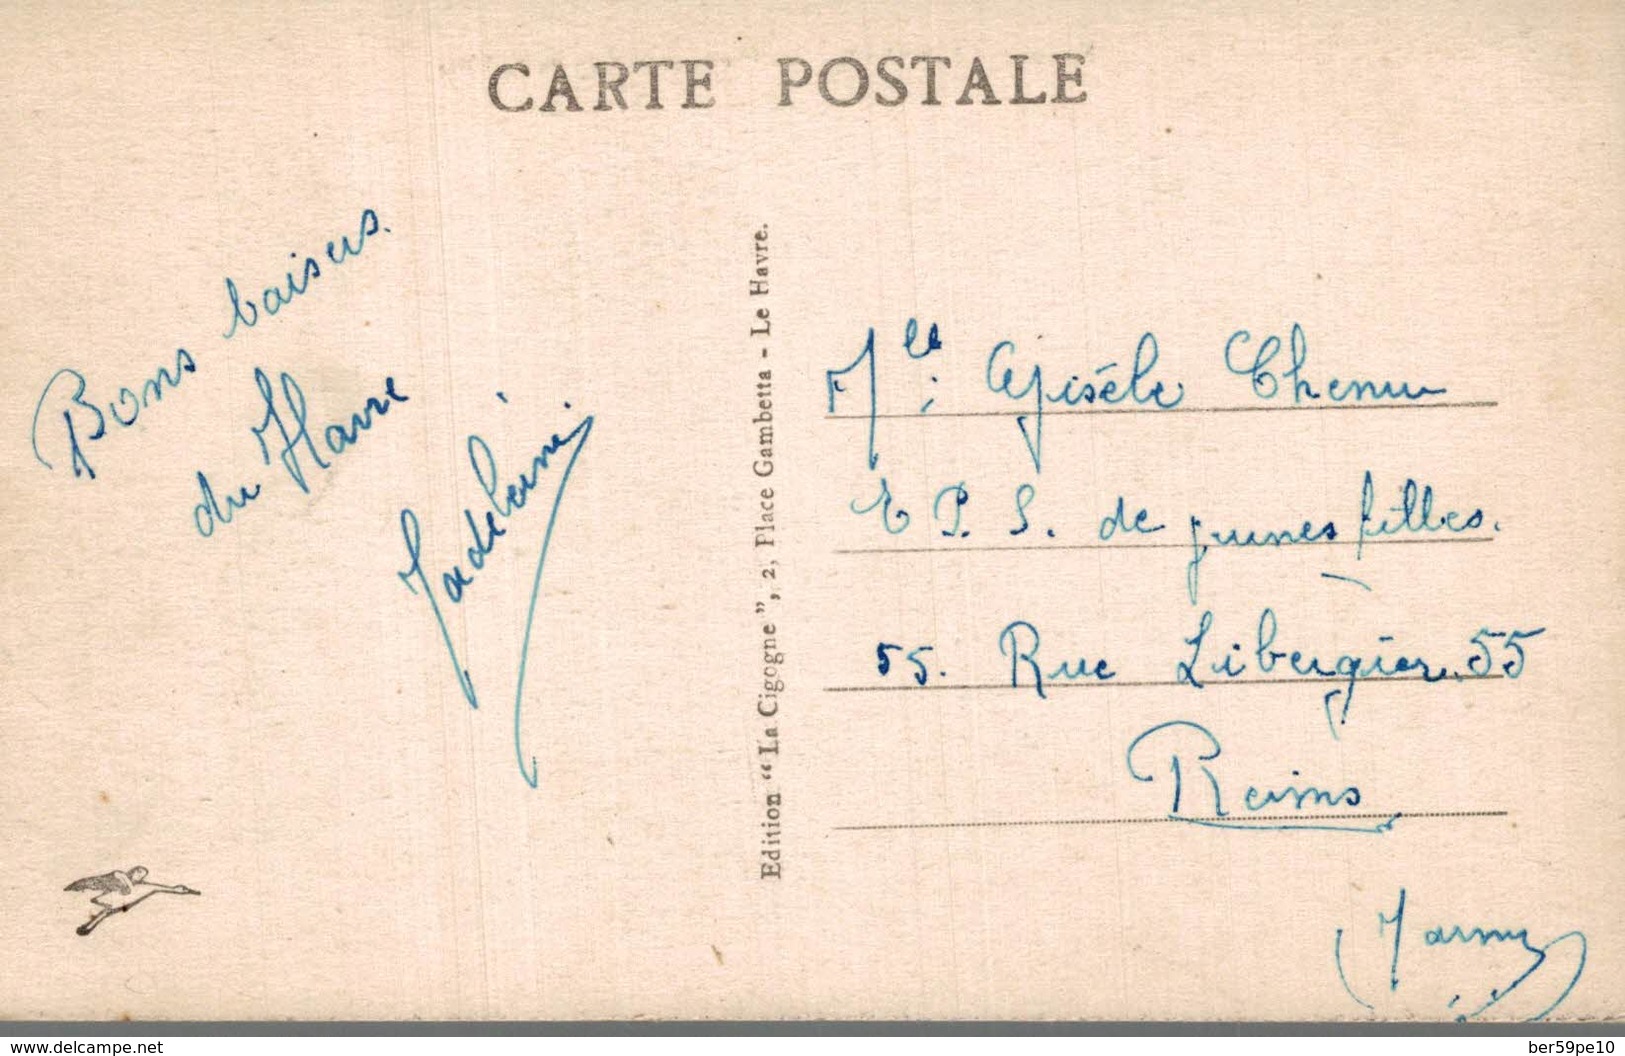 CARTE POSTALE
Bons baisers
du Havre
Edition “La Cigogne”, 2, Place Gambetta - Le Havre.
Mlle Gisèle Chenu
E P. S. de jeunes filles.
55. Rue Libergier. 55
Reims
Marne
www.delcampe.net
ber59pe10